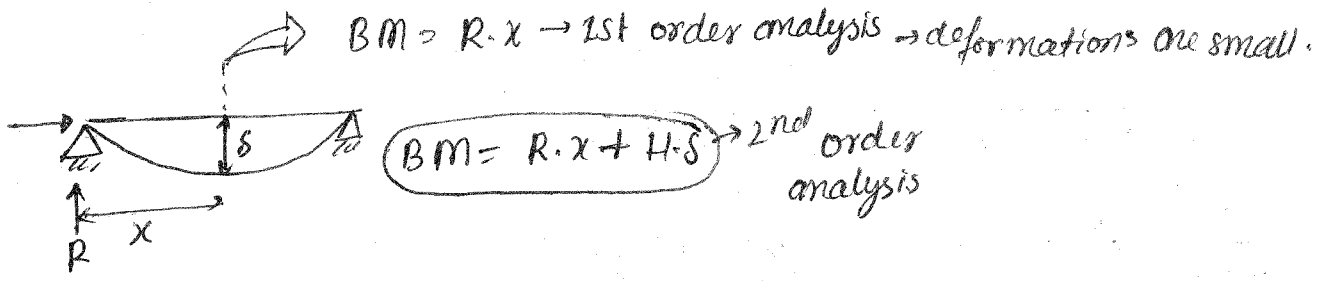 BM = R.x → 1st order analysis → deformations are small.
δ
BM = R.x + H.δ → 2nd order analysis
x
R